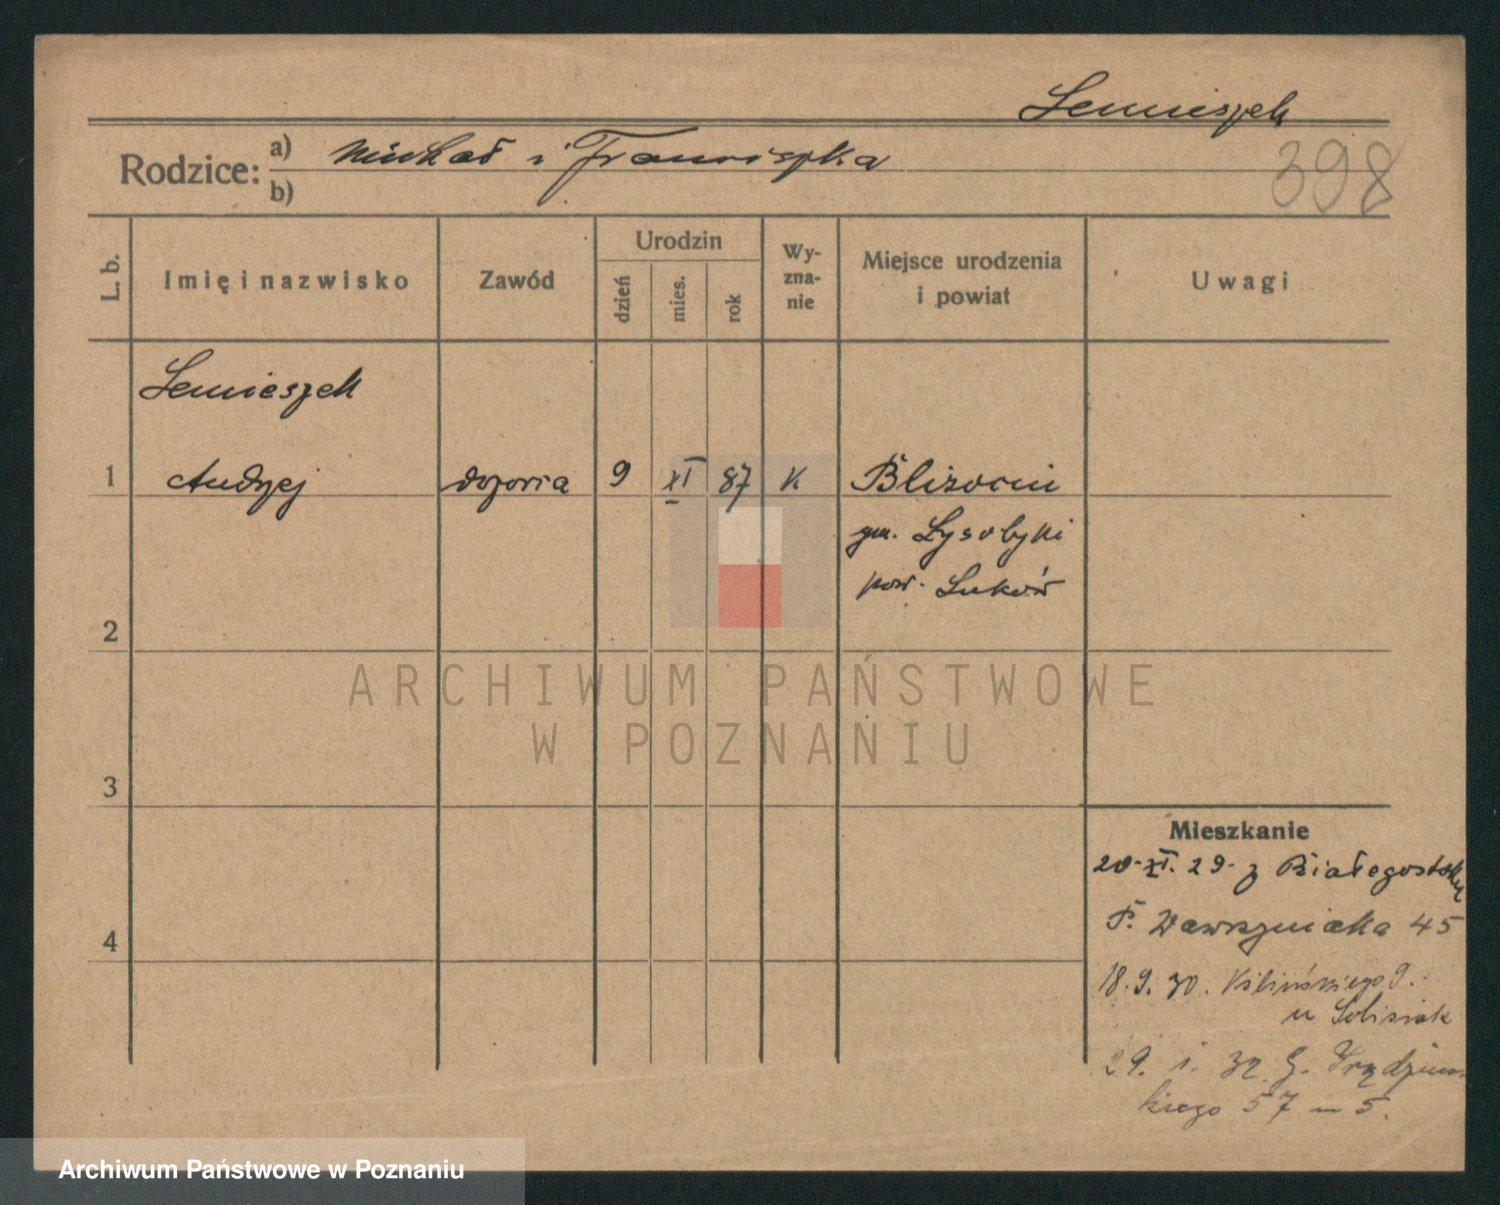 Lemieszek
Rodzice: a) Michał i Franciszka
b)
398
L. b. Imię i nazwisko Zawód Urodzin dzień mies. rok Wy-zna-nie Miejsce urodzenia i powiat Uwagi
Lemieszek
1 Andrzej dozorca 9 XI 87 K
gm. Łysobyki
pow. Łuków
2
ARCHIWUM PAŃSTWOWE
W POZNANIU
3
Mieszkanie
20. XI. 29. z
P. Wawrzyniaka 45
4
18. 9. 30. Kilińskiego 9.
u
29. 1. 32 G.
57 m 5.
Archiwum Państwowe w Poznaniu